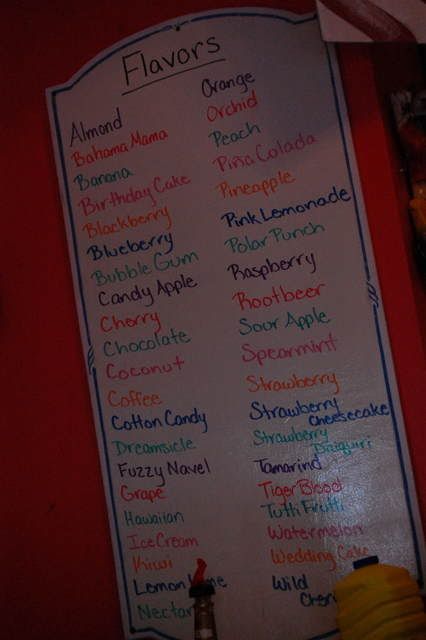 Flavors
Almond
Bahama Mama
Banana
Birthday Cake
Blackberry
Blueberry
Bubble Gum
Candy Apple
Cherry
Chocolate
Coconut
Coffee
Cotton Candy
Dreamsicle
Fuzzy Navel
Grape
Hawaiian
Ice Cream
Kiwi
Lemon Lime
Nectar
Orange
Orchid
Peach
Piña Colada
Pineapple
Pink Lemonade
Polar Punch
Raspberry
Rootbeer
Sour Apple
Spearmint
Strawberry
Strawberry
Cheesecake
Strawberry
Daiquiri
Tamarind
Tiger Blood
Tutti Frutti
Watermelon
Wedding Cake
Wild